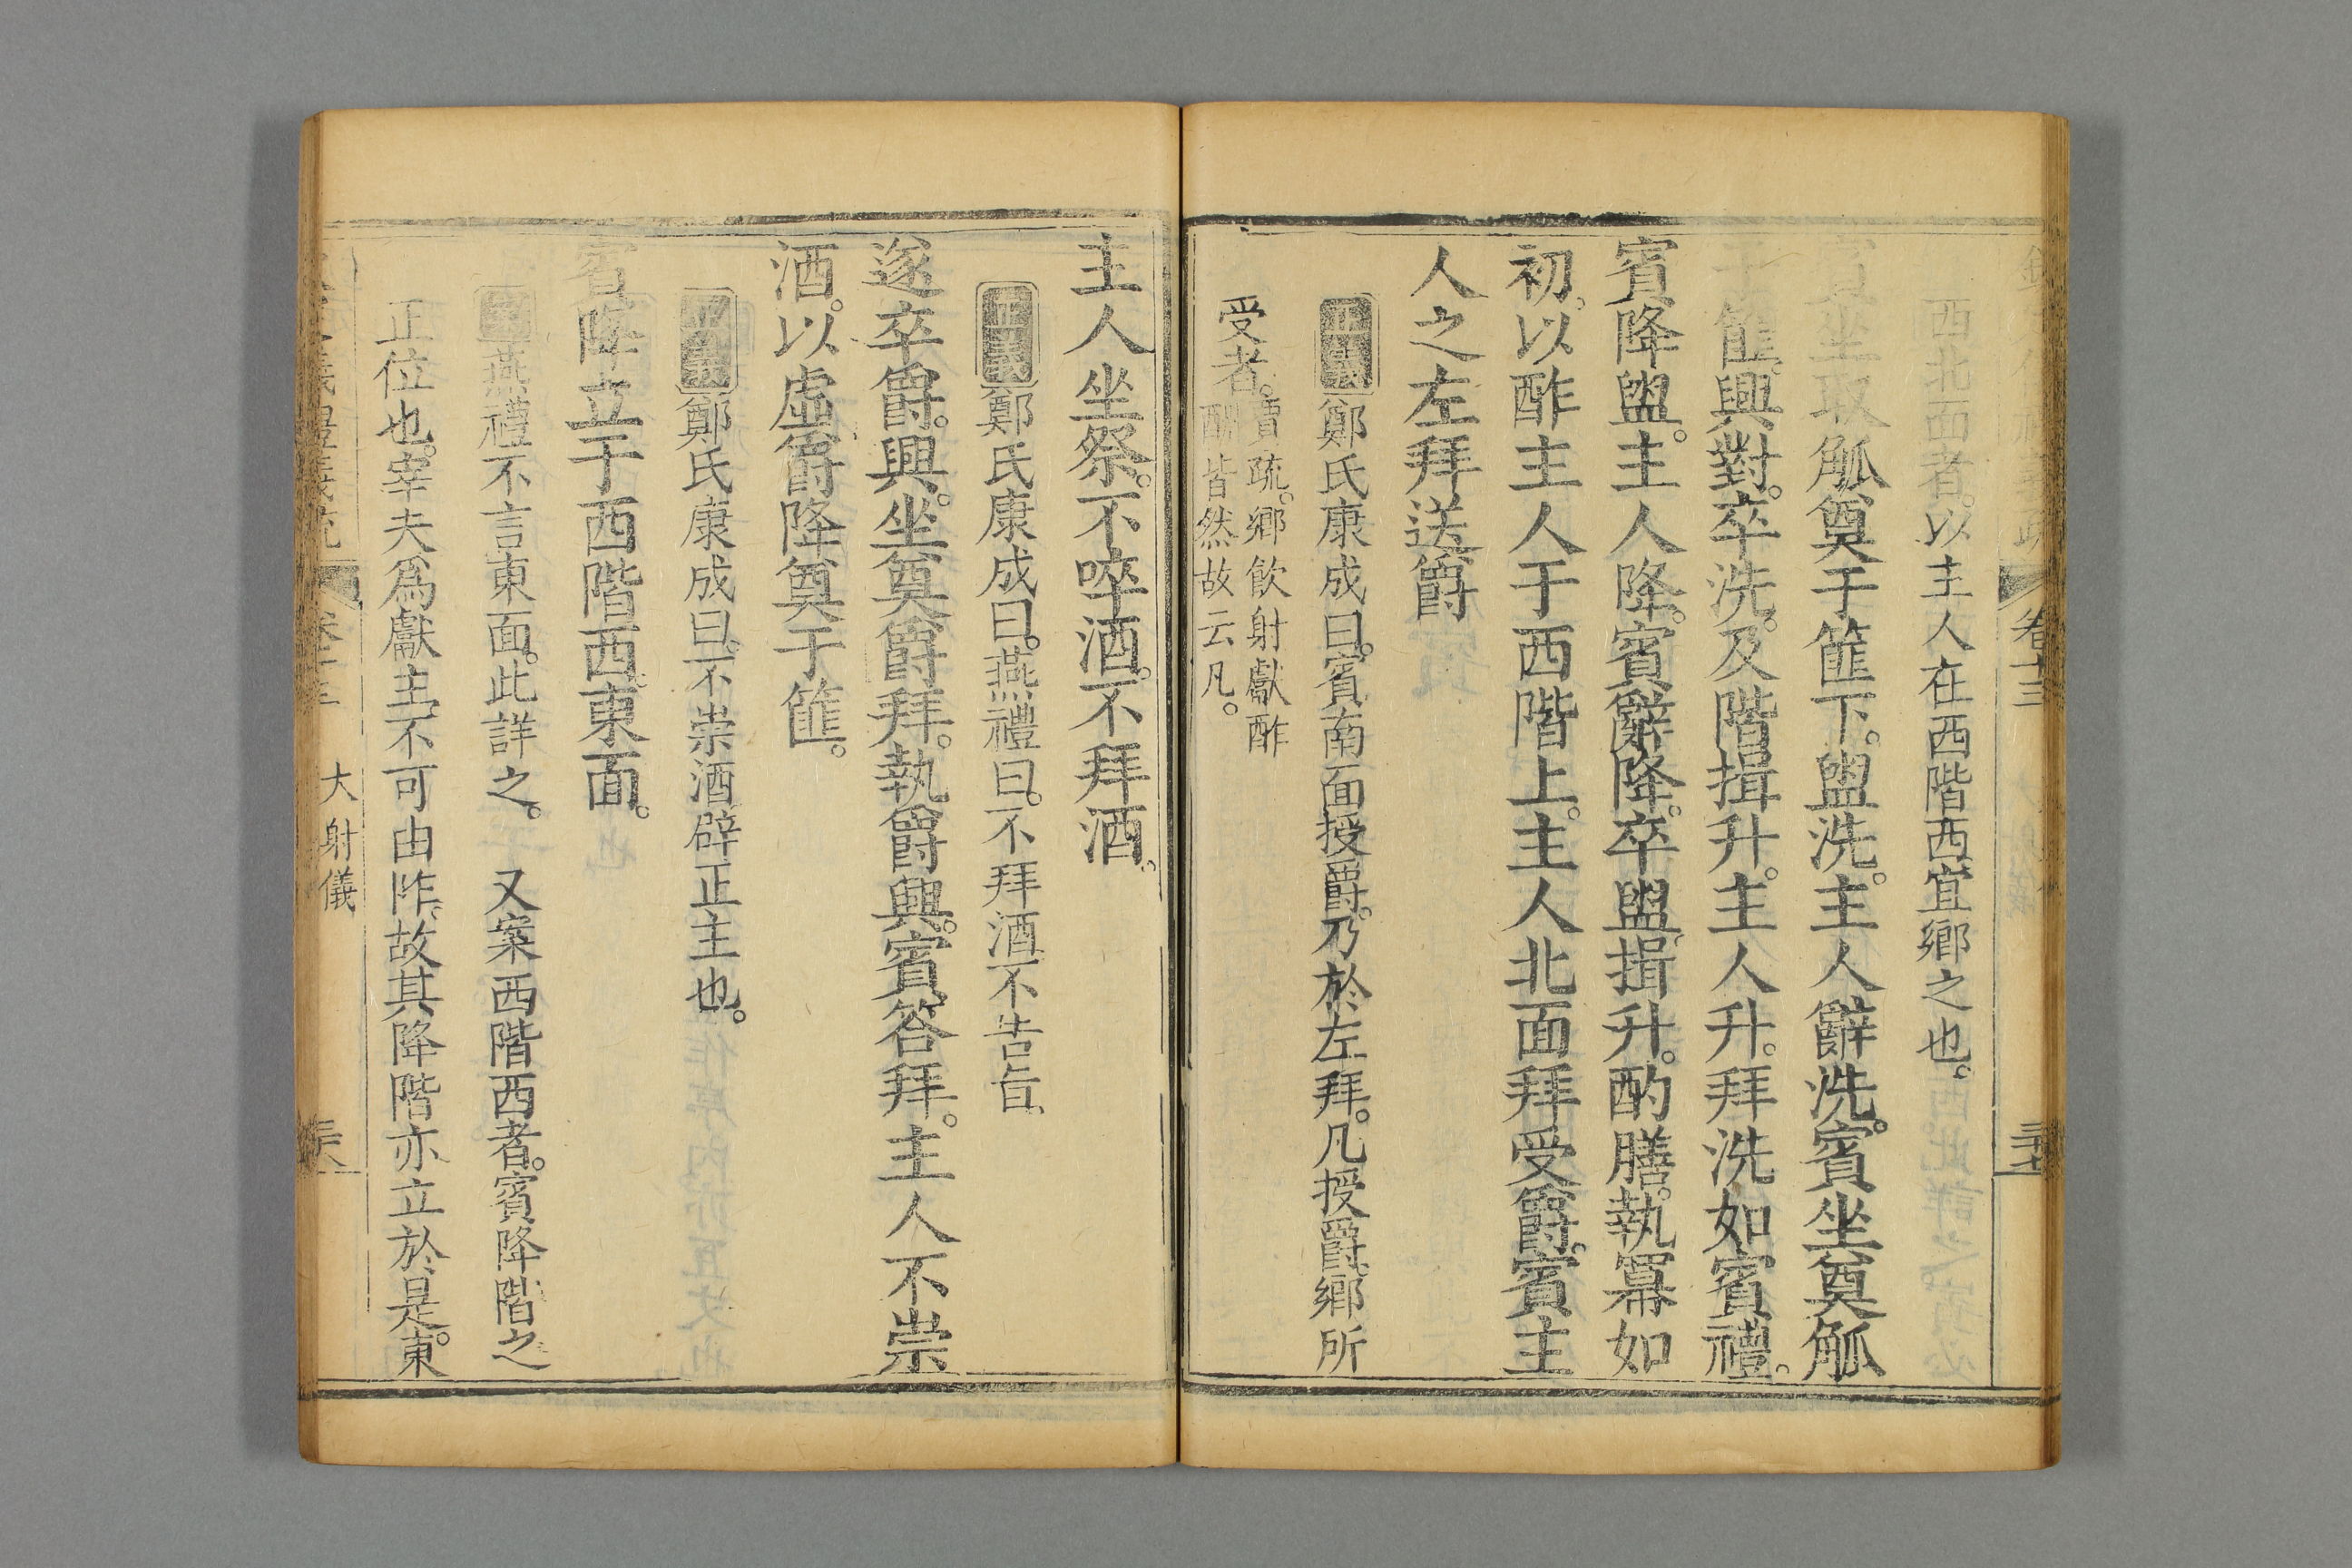 卷十三
三十七
西北面者。以主人在西階西宜鄉之也。
賓坐取觚奠于篚下。盥洗。主人辭洗。賓坐奠觚
于篚。興對。卒洗。及階揖升。主人升。拜洗如賓禮。
賓降盥。主人降。賓辭降。卒盥揖升。酌膳。執冪如
初。以酢主人于西階上。主人北面拜受爵。賓主
人之左拜送爵
正義鄭氏康成曰。賓南面授爵。乃於左拜。凡授爵。鄉所
受者。賈疏。鄉飲射獻酢
酬皆然故云凡。
主人坐祭。不啐酒。不拜酒。
正義鄭氏康成曰。燕禮曰。不拜酒不告旨。
遂卒爵。興。坐奠爵拜。執爵興。賓答拜。主人不崇
酒。以虛爵降奠于篚。
正義鄭氏康成曰。不崇酒辟正主也。
賓降立于西階西。東面。
案燕禮不言東面。此詳之。 又案西階西者。賓降階之
正位也。宰夫為獻主。不可由阼。故其降階亦立於是。東
儀禮義疏 卷十三 大射儀 三十八